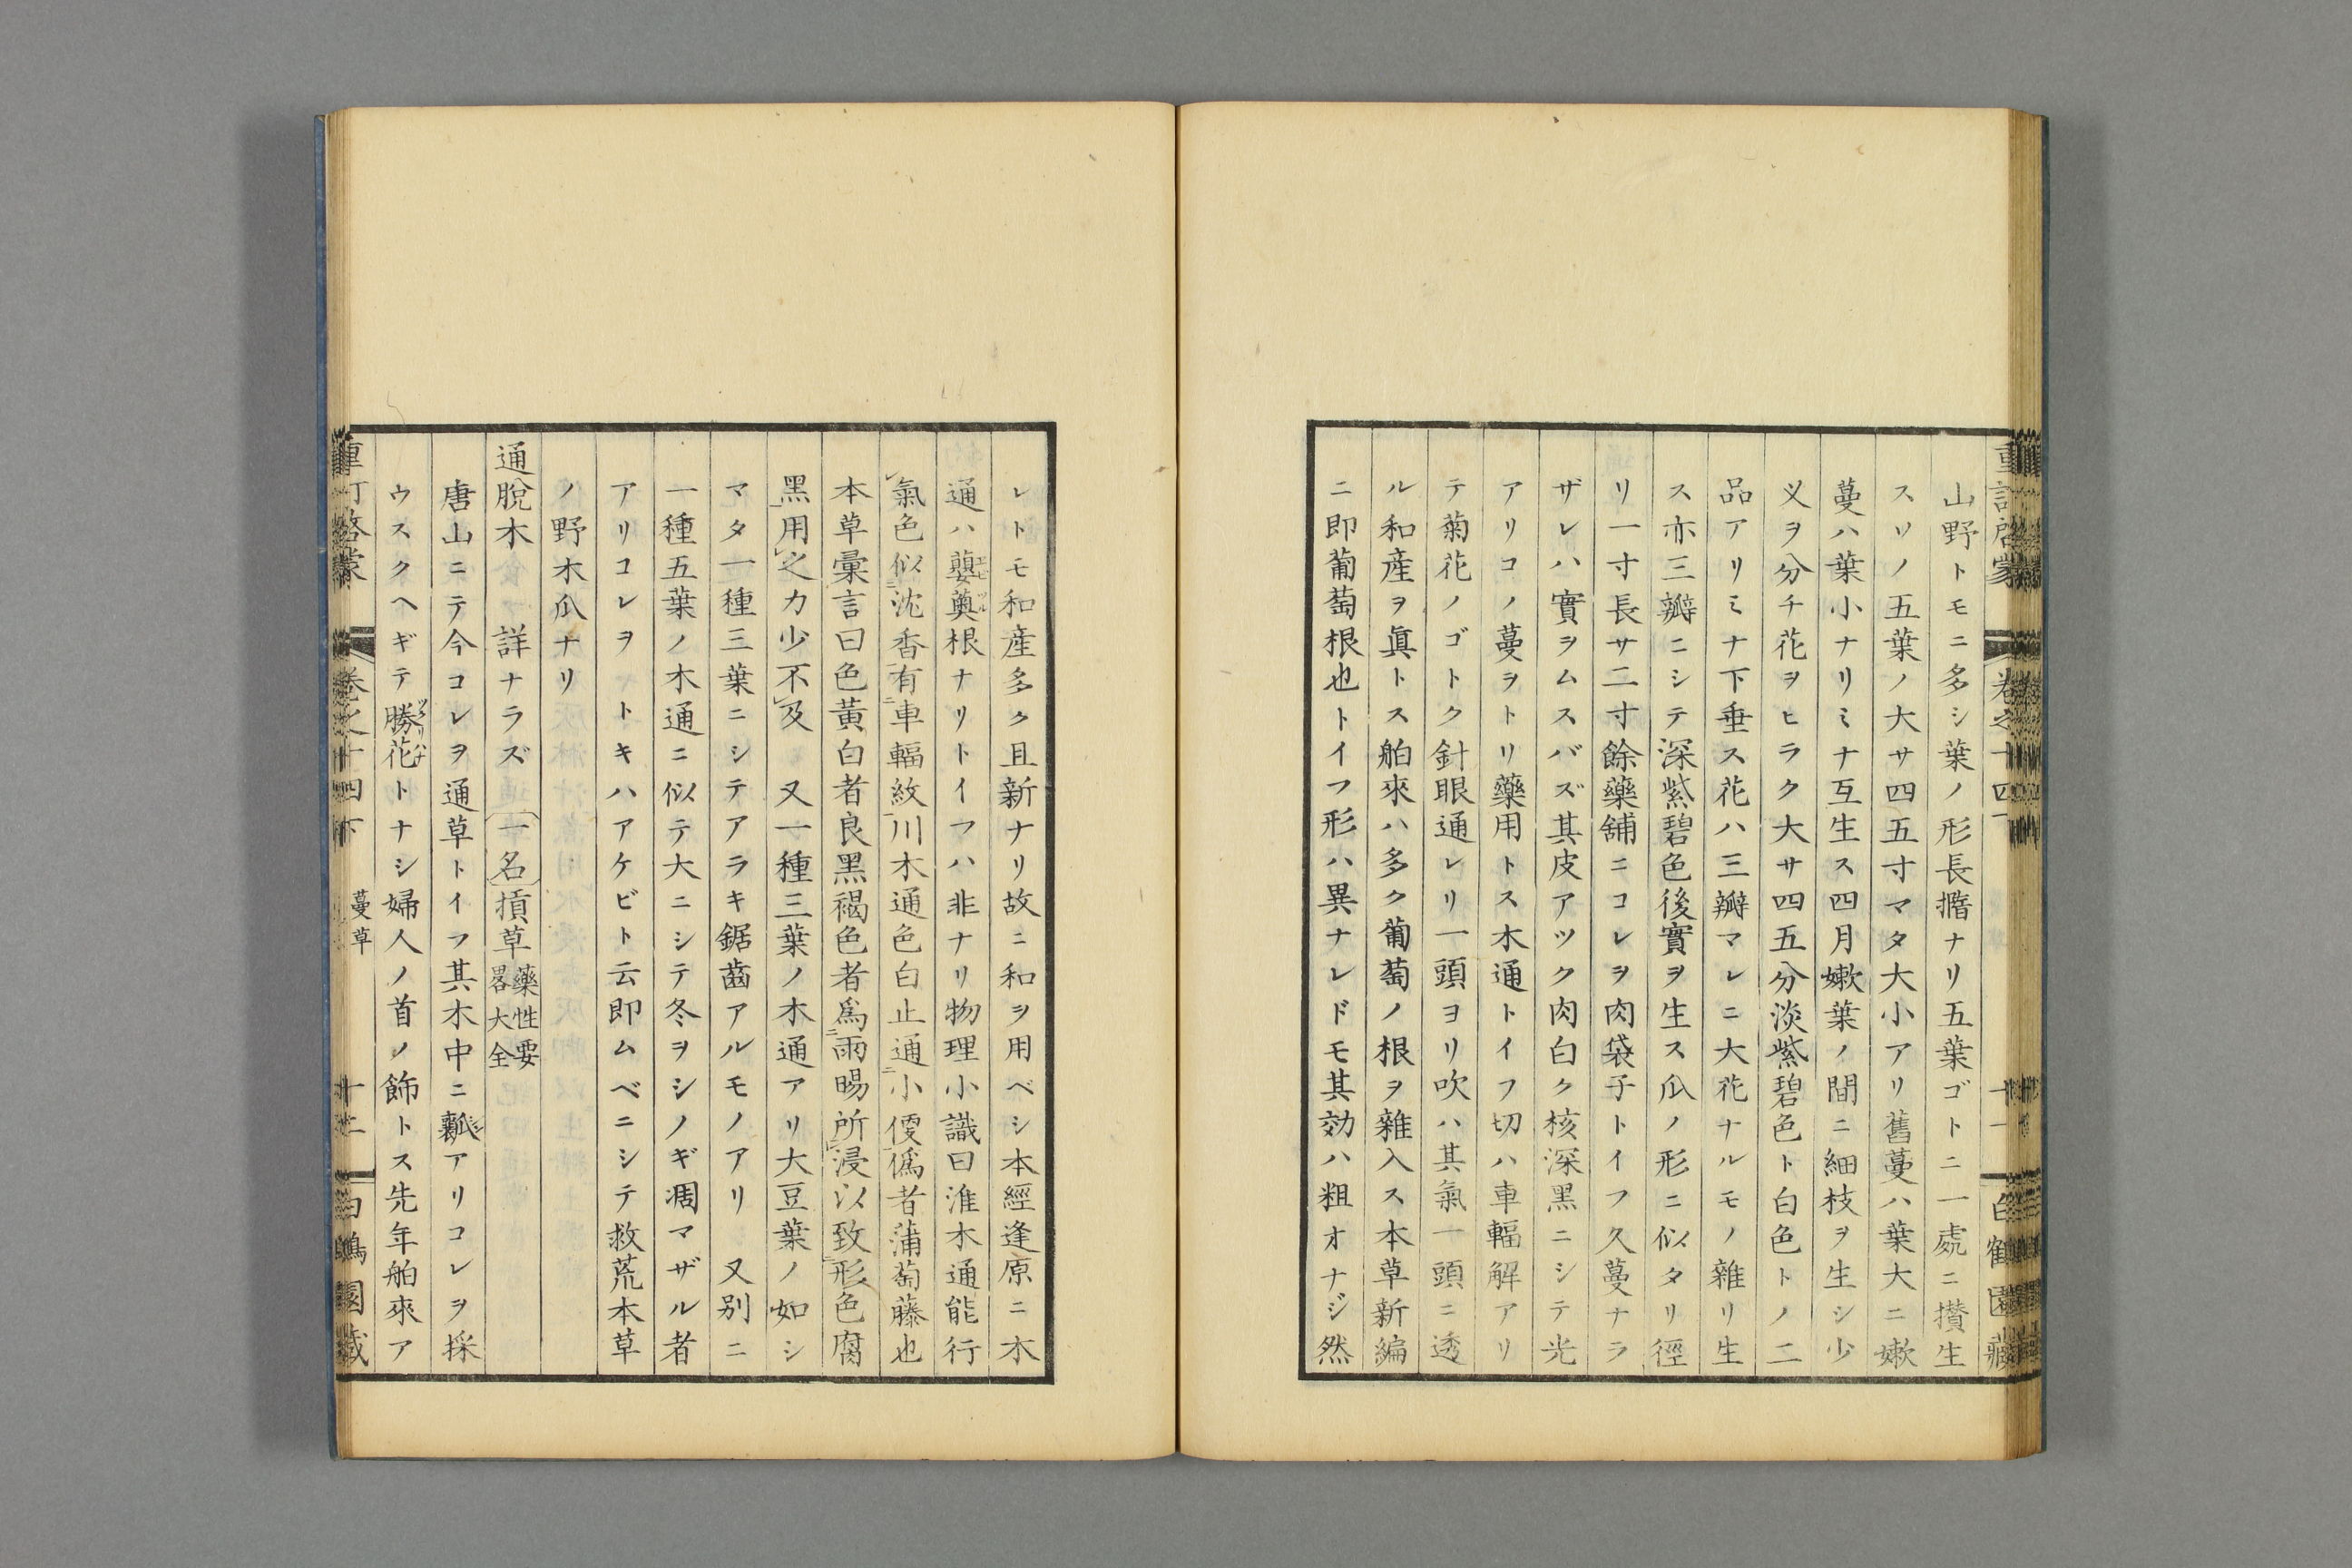 山野トモニ多シ葉ノ形長撱ナリ五葉ゴトニ一處ニ攅生
スソノ五葉ノ大サ四五寸マタ大小アリ舊蔓ハ葉大ニ嫰
蔓ハ葉小ナリミナ互生ス四月嫰葉ノ間ニ細枝ヲ生シ少
义ヲ分チ花ヲヒラク大サ四五分淡紫碧色ト白色トノ二
品アリミナ下垂ス花ハ三瓣マレニ大花ナルモノ雜リ生
ス亦三瓣ニシテ深紫碧色後實ヲ生ス瓜ノ形ニ似タリ徑
リ一寸長サ二寸餘藥舖ニコレヲ肉袋子トイフ久蔓ナラ
ザレハ實ヲムスバズ其皮アツク肉白ク核深黑ニシテ光
アリコノ蔓ヲトリ藥用トス木通トイフ切ハ車輻解アリ
テ菊花ノゴトク針眼通レリ一頭ヨリ吹ハ其氣一頭ニ透
ル和產ヲ眞トス舶來ハ多ク葡萄ノ根ヲ雜入ス本草新編
ニ即葡萄根也トイフ形ハ異ナレドモ其効ハ粗オナジ然
重訂啓蒙 卷之十四下 十一 白鶴園藏
レトモ和產多ク且新ナリ故ニ和ヲ用ベシ本經逢原ニ木
通ハ蘡薁根ナリトイフハ非ナリ物理小識曰淮木通能行
氣色似沈香有車輻紋川木通色白止通小便僞者蒲萄藤也
本草彙言曰色黃白者良黑褐色者爲雨暘所浸以致形色腐
黑用之力少不及 又一種三葉ノ木通アリ大豆葉ノ如シ
マタ一種三葉ニシテアラキ鋸齒アルモノアリ 又別ニ
一種五葉ノ木通ニ似テ大ニシテ冬ヲシノギ凋マザル者
アリコレヲトキハアケビト云即ムベニシテ救荒本草
ノ野木瓜ナリ
通脫木 詳ナラズ 一名 㨋草 藥性要畧大全
唐山ニテ今コレヲ通草トイフ其木中ニ瓤アリコレヲ採
ウスクヘギテ勝花トナシ婦人ノ首ノ飾トス先年舶來ア
重訂啓蒙 卷之十四下 蔓草 十二 白鶴園藏